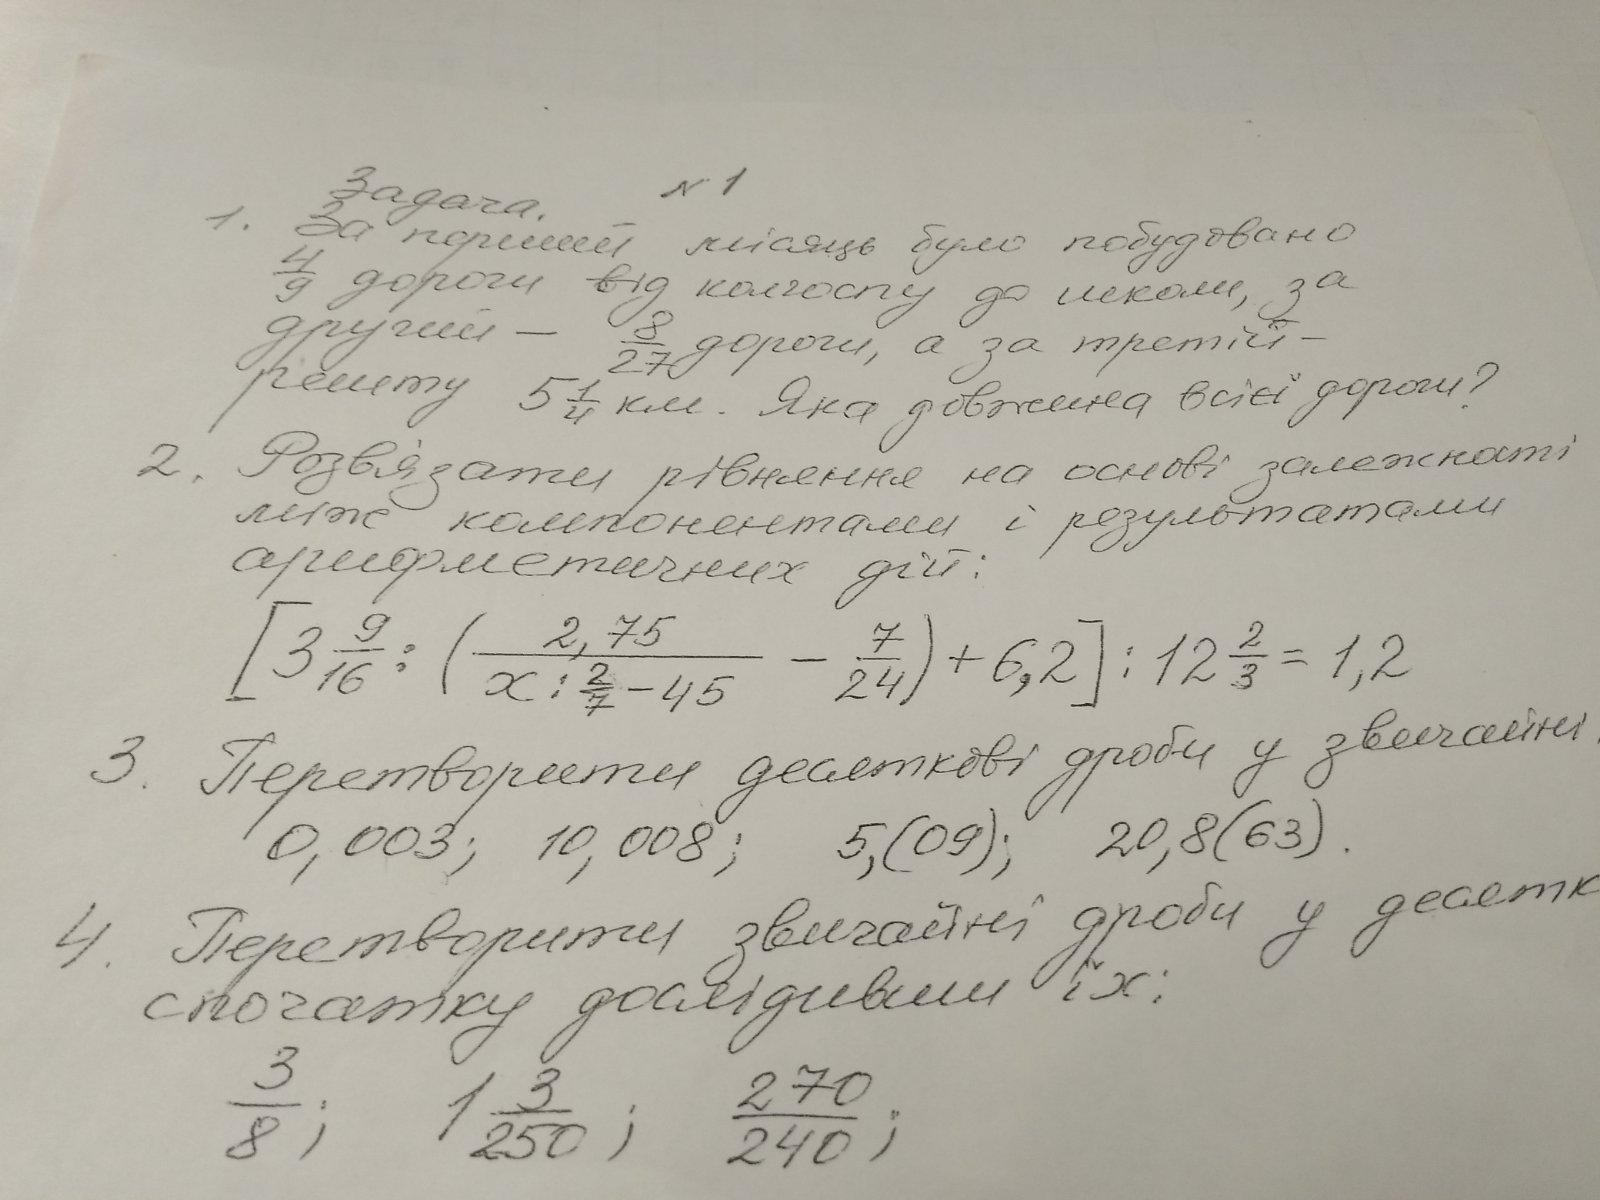 Задача. № 1
1. За перший місяць було побудовано
4/9 дороги від колгоспу до школи, за
другий – 8/27 дороги, а за третій –
решту 5 1/4 км. Яка довжина всієї дороги?
2. Розв'язати рівняння на основі залежнаті
між компонентами і результатами
арифметичних дій:
[3 9/16 : (2,75/(x : 2/7 – 45) – 7/24) + 6,2] : 12 2/3 = 1,2
3. Перетворити десяткові дроби у звичайні.
0,003; 10,008; 5,(09); 20,8(63).
4. Перетворити звичайні дроби у десятк
спочатку дослідивши їх:
3/8; 1 3/250; 270/240;